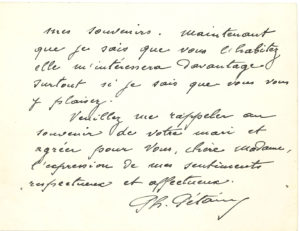 mes souvenirs. Maintenant
que je sais que vous l'habitez
elle m'intéressera davantage
surtout si je sais que vous vous
y plaisez.
Veuillez me rappeler au
souvenir de votre mari et
agréer pour vous, chère madame,
l'expression de mes sentiments
respectueux et affectueux.
Ph. Pétain